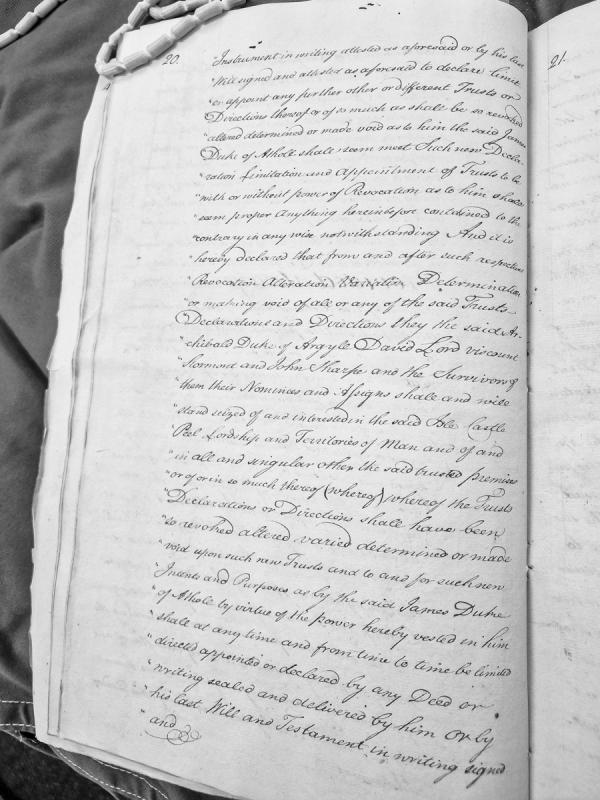 20.
21.
"Instrument in writing attested as aforesaid or by his last
"Will signed and attested as aforesaid to declare limit
"or appoint any further other or different Trusts or
Directions thereof or of so much as shall be so revoked
"altered determined or made void as to him the said James
Duke of Atholl shall seem meet Such new Decla-
"ration Limitation and Appointment of Trusts to be
"with or without power of Revocation as to him shall
"seem proper Anything hereinbefore contained to the
"contrary in any wise notwithstanding And it is
"hereby declared that from and after such respective
"Revocation Alteration Variation Determination
"or making void of all or any of the said Trusts
"Declarations and Directions they the said Ar-
"chibald Duke of Argyle David Lord viscount
"Stormont and John Sharpe and the Survivors of
"them their Nominees and Assigns shall and will
"stand seized of and interested in the said Isle Castle
"Peel Lordship and Territories of Man and of and
"in all and singular other the said trusted premises
"or of or in so much thereof (whereof) whereof the Trusts
"Declarations or Directions shall have been
"so revoked altered varied determined or made
"void upon such new Trusts and to and for such new
"Intents and Purposes as by the said James Duke
"of Atholl by virtue of the power hereby vested in him
"shall at any time and from time to time be limited
"directed appointed or declared by any Deed or
"writing sealed and delivered by him or by
"his last Will and Testament in writing signed
"and